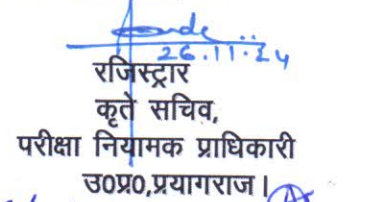 26.11.24
रजिस्ट्रार
कृते सचिव,
परीक्षा नियामक प्राधिकारी
उ०प्र०,प्रयागराज।